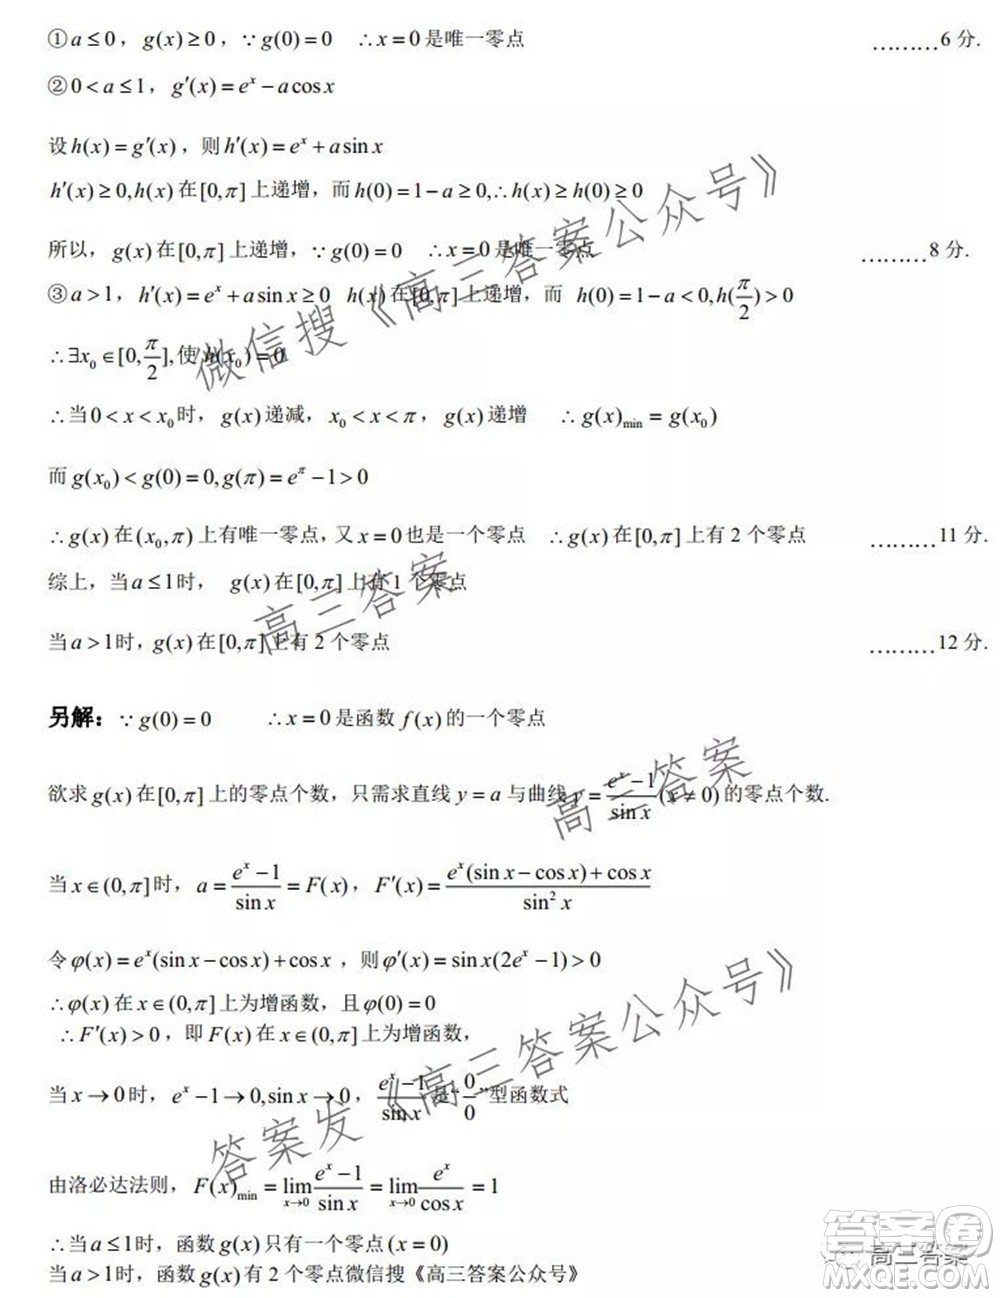 ①a≤0，g(x)≥0，∵g(0)=0 ∴x=0是唯一零点 ………6 分.
②0<a≤1，g′(x)=e^x−a cos x
设h(x)=g′(x)，则h′(x)=e^x+a sin x
h′(x)≥0,h(x)在[0,π]上递增，而h(0)=1−a≥0,∴h(x)≥h(0)≥0
所以，g(x)在[0,π]上递增，∵g(0)=0 ∴x=0是唯一零点 ………8 分.
③a>1，h′(x)=e^x+a sin x≥0 h(x)在[0,π]上递增，而 h(0)=1−a<0,h(π/2)>0
∴∃x₀∈[0,π/2],使h(x₀)=0
∴当0<x<x₀时，g(x)递减，x₀<x<π，g(x)递增 ∴g(x)min=g(x₀)
而g(x₀)<g(0)=0,g(π)=e^π−1>0
∴g(x)在(x₀,π)上有唯一零点，又x=0也是一个零点 ∴g(x)在[0,π]上有 2 个零点 ………11 分.
综上，当a≤1时， g(x)在[0,π]上有 1 个零点
当a>1时，g(x)在[0,π]上有 2 个零点 ………12 分.
另解：∵g(0)=0 ∴x=0是函数f(x)的一个零点
欲求g(x)在[0,π]上的零点个数，只需求直线y=a与曲线y=(e^x−1)/sin x(x≠0)的零点个数.
当x∈(0,π]时，a=(e^x−1)/sin x=F(x)，F′(x)=(e^x(sin x−cos x)+cos x)/sin²x
令φ(x)=e^x(sin x−cos x)+cos x，则φ′(x)=sin x(2e^x−1)>0
∴φ(x)在x∈(0,π]上为增函数，且φ(0)=0
∴F′(x)>0，即F(x)在x∈(0,π]上为增函数，
当x→0时，e^x−1→0,sin x→0，(e^x−1)/sin x是“0/0”型函数式
由洛必达法则，F(x)min=lim x→0 (e^x−1)/sin x=lim x→0 e^x/cos x=1
∴当a≤1时，函数g(x)只有一个零点(x=0)
当a>1时，函数g(x)有 2 个零点微信搜《高三答案公众号》
微信搜《高三答案公众号》
高三答案
高三答案
答案发《高三答案公众号》
答案卷
高三答案